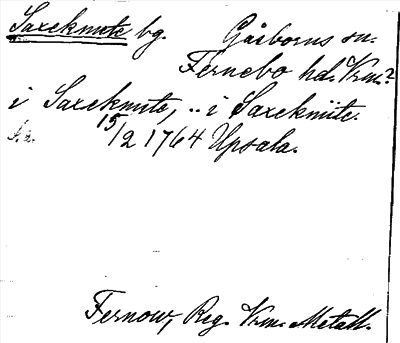 Saxeknute bg. Gåsborns sn.
Fernebo hd. Vrm.?
i Saxeknute, .. i Saxeknüte.
S.å. 15/2 1764 Upsala.
Fernow, Reg. Vrm. Metall.